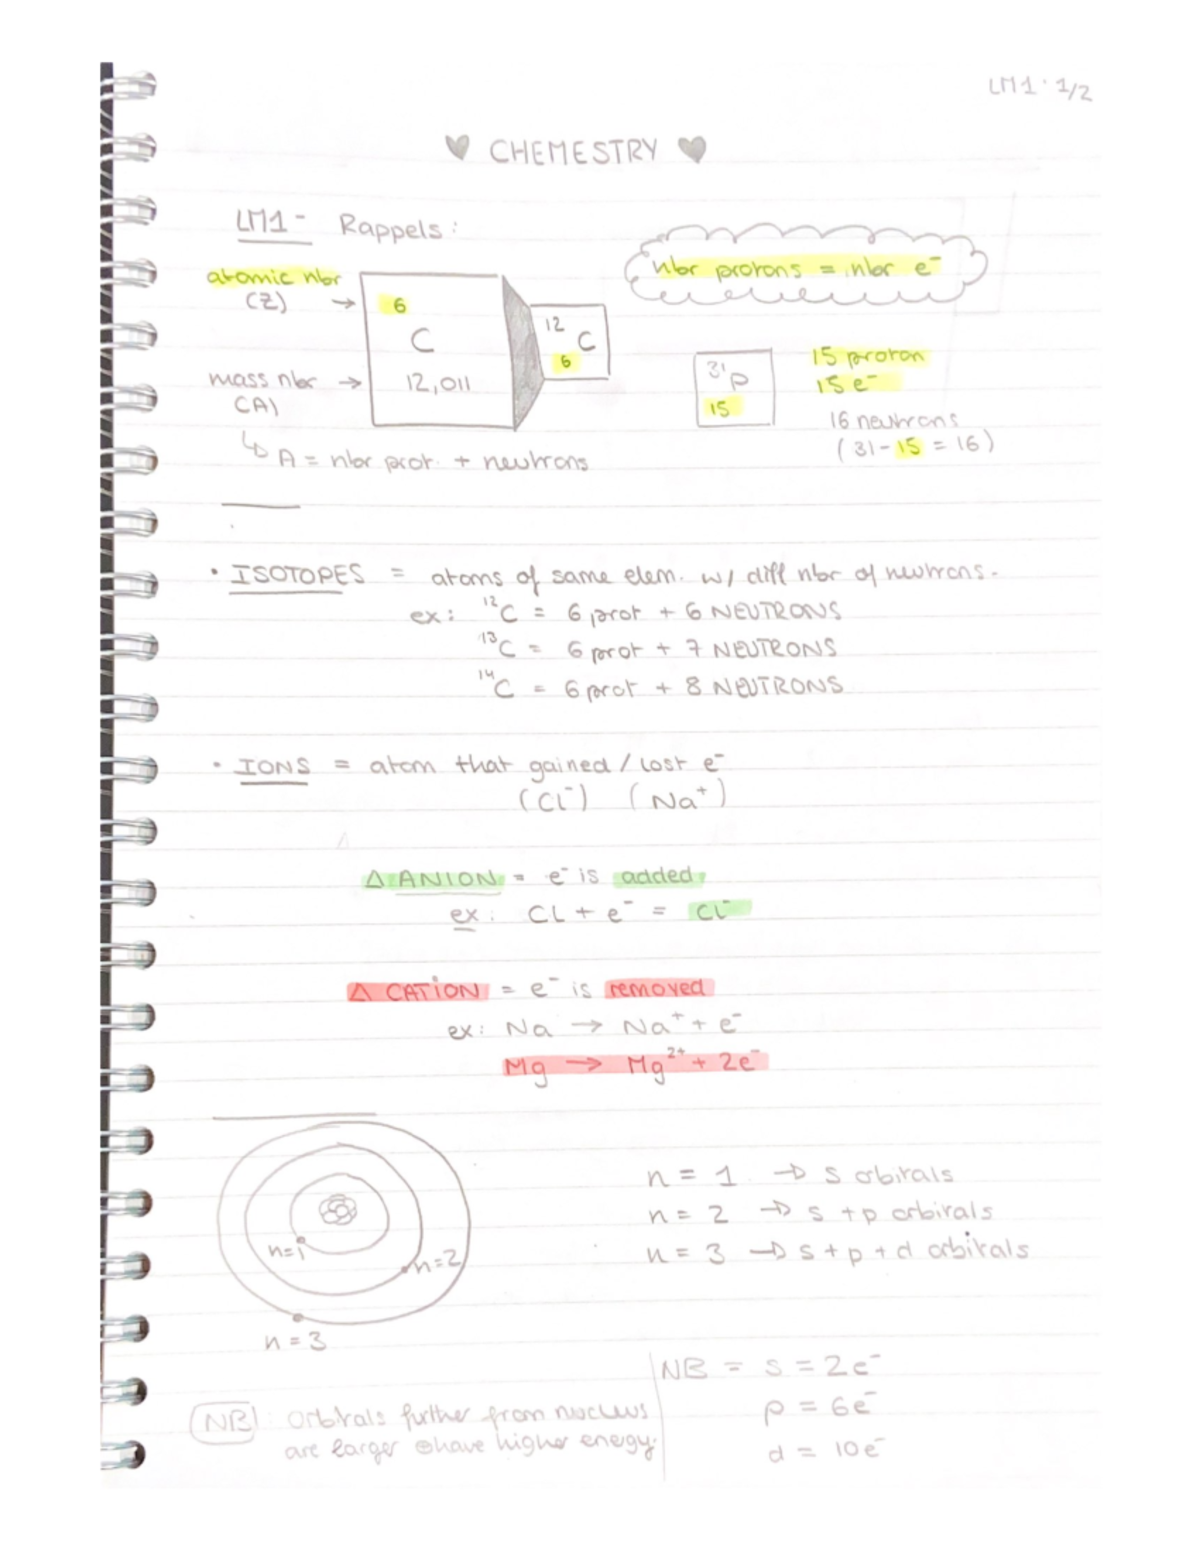 LM1 · 1/2
♥ CHEMESTRY ♥
LM1 - Rappels :
nbr protons = nbr e⁻
atomic nbr
(Z) →
6
C
12,011
12
C
6
mass nbr →
(A)
↳ A = nbr prot. + neutrons
31
P
15
15 proton
15 e⁻
16 neutrons
(31 - 15 = 16)
• ISOTOPES = atoms of same elem. w/ diff nbr of neutrons.
ex : ¹²C = 6 prot + 6 NEUTRONS
¹³C = 6 prot + 7 NEUTRONS
¹⁴C = 6 prot + 8 NEUTRONS
• IONS = atom that gained / lost e⁻
(Cl⁻) (Na⁺)
Δ ANION = e⁻ is added
ex : CL + e⁻ = Cl⁻
Δ CATION = e⁻ is removed
ex : Na → Na⁺ + e⁻
Mg → Mg²⁺ + 2e⁻
n=1
n=2
n = 3
n = 1 → s orbitals
n = 2 → s + p orbitals
n = 3 → s + p + d orbitals
NB : Orbitals further from nucleus
are larger & have higher energy.
NB = s = 2e⁻
p = 6e⁻
d = 10e⁻